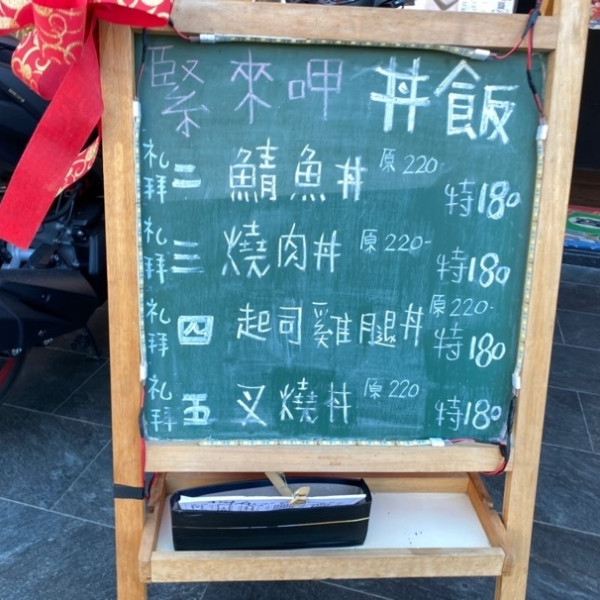 緊來呷 丼飯
礼拜二 鯖魚丼 原220- 特180
礼拜三 燒肉丼 原220- 特180
礼拜四 起司雞腿丼 原220- 特180
礼拜五 叉燒丼 原220- 特180